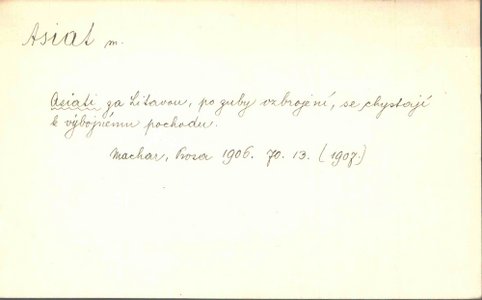 Asiat m.
Asiati za Litavou, po zuby vzbrojení, se chystají
k výbojnému pochodu.
Machar, Prosa 1906. 70. 13. (1907.)